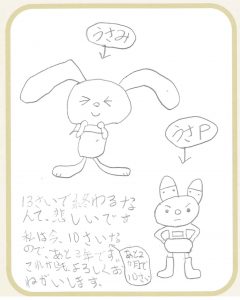 うさみ
うさP
13さいで終わるな
んて、悲しいです
私は今、10さいな
ので、あと3年です。
これからも、よろしくお
ねがいします。
あと2
カ月で
10さい